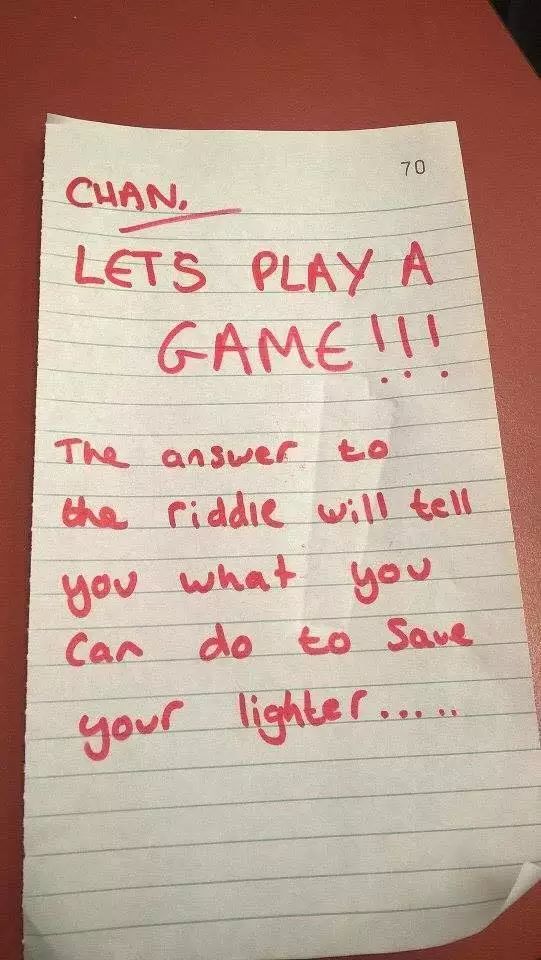 70
CHAN.
LETS PLAY A
GAME!!!
The answer to
the riddle will tell
you what you
can do to save
your lighter.....